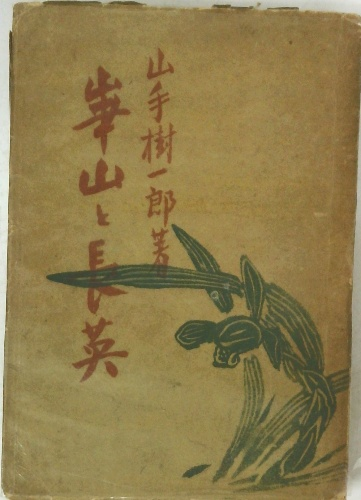 山手樹一郎著
崋山と長英